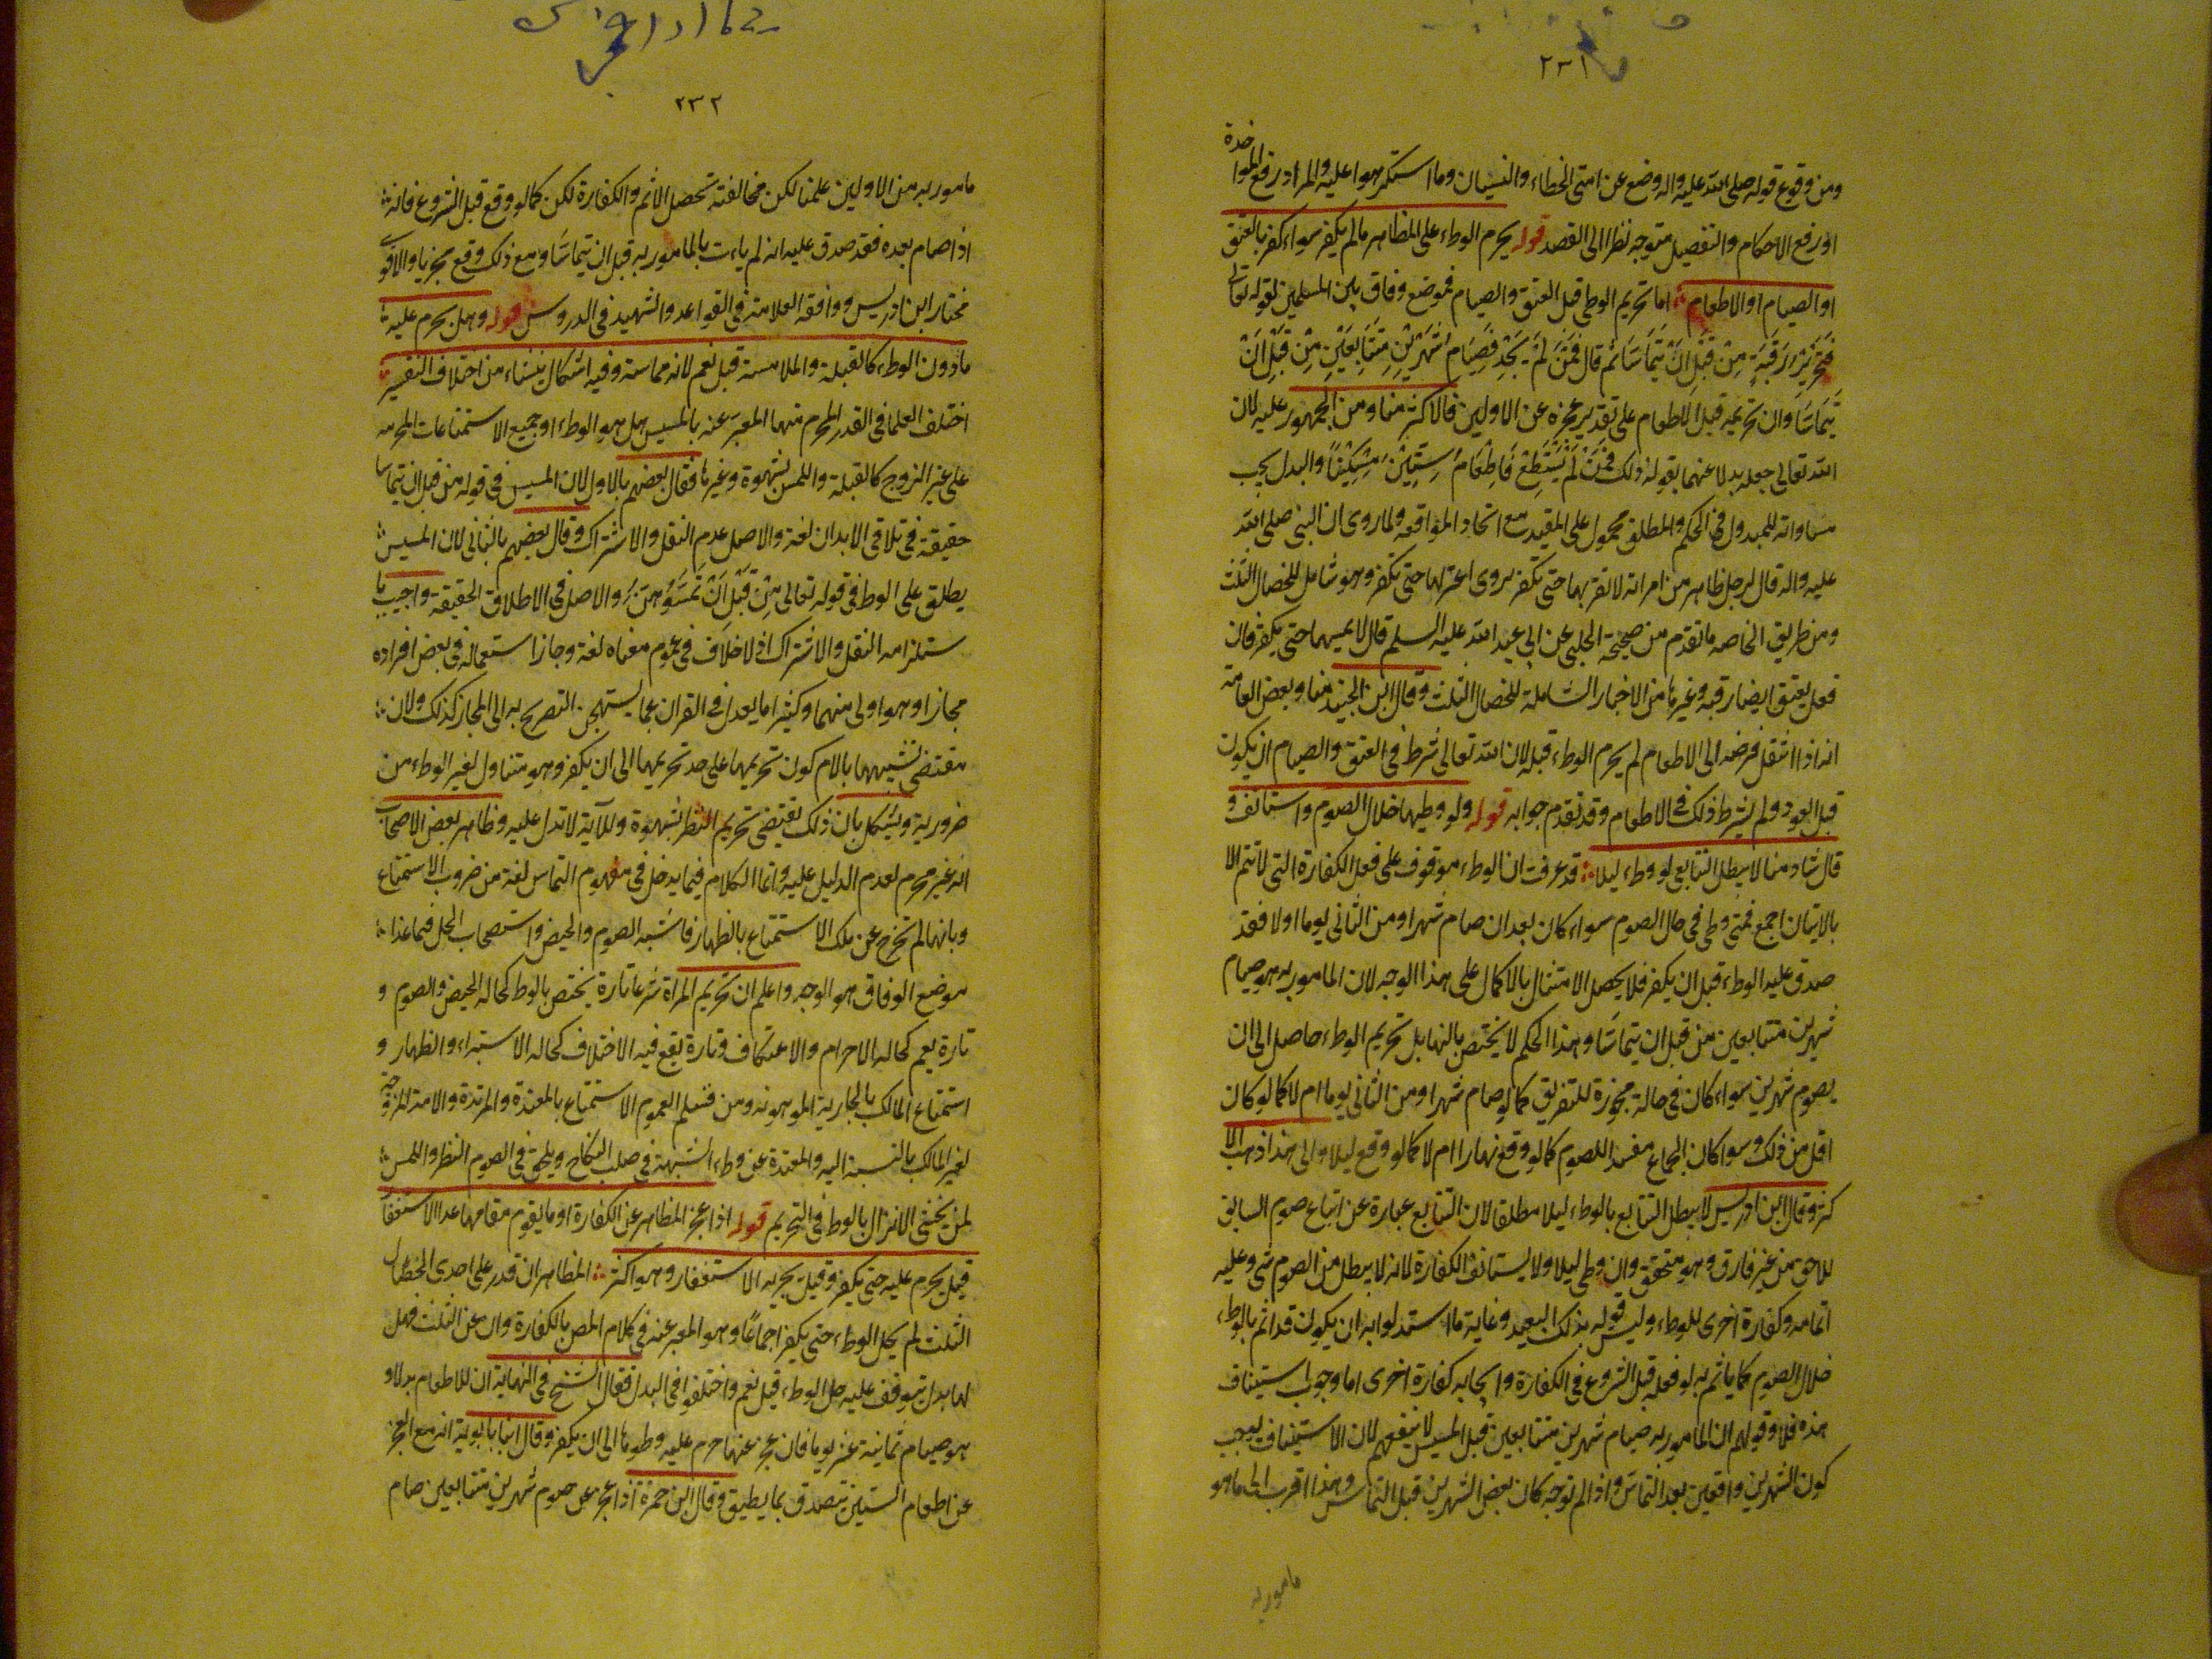 ٢٣١
ومن وقوع قوله صلى الله عليه واله وضع عن امتى الخطاء والنسيان وما استكرهوا عليه والمراد رفع المواخدة
او رفع الاحكام والتفصيل متوجه نظرا الى القصد قوله يحرم الوطء على المظاهر مالم يكفر سواء كفر بالعتق
او الصيام او الاطعام اما تحريم الوطى قبل العتق والصيام فموضع وفاق بين المسلمين لقوله تعالى
فَتَحْرِيرُ رَقَبَةٍ مِنْ قَبْلِ اَنْ يَتَمَاسَّا ثم قال فَمَنْ لَمْ يَجِدْ فَصِيَامُ شَهْرَيْنِ مُتَتَابِعَيْنِ مِنْ قَبْلِ اَنْ
يَتَمَاسَّا وان تحريمه قبل الاطعام على تقدير عجزه عن الاولين فالاكثر منا ومن الجمهور عليه لان
الله تعالى جعله بدلا عنهما بقوله ذلك فَمَنْ لَمْ يَسْتَطِعْ فَاِطْعَامُ سِتِّينَ مِسْكِينًا والبدل يجب
مساواته للمبدول فى الحكم والمطلق محمول على المقيد مع اتحاد المواقعه ولما روى ان النبى صلى الله
عليه واله قال لرجل ظاهر من امراته لا تقربها حتى تكفر يروى اعتزلها حتى تكفر وهو شامل للخصال الثلث
ومن طريق الخاصه ما تقدم من صحيحة الحلبى عن ابى عبد الله عليه السلم قال لا يمسها حتى يكفر فان
فعل يعتق ايضا رقبه وغيرها من الاخبار الشاملة للخصال الثلث وقال ابن الجنيد منا وبعض العامة
انه اذا انتقل فرضه الى الاطعام لم يحرم الوطء قبله لان الله تعالى شرط فى العتق والصيام ان يكون
قبل العود ولم يشرط ذلك فى الاطعام وقد تقدم جوابه قوله ولو وطيها خلال الصوم واستانف و
قال شاد منا لا يبطل التتابع لو وطء ليلا قد عرفت ان الوطء موقوف على فعل الكفارة التى لا تتم الا
بالاتيان اجمع فمتى وطى فى حال الصوم سواء كان بعد ان صام شهرا ومن الثانى يوما اولا فقد
صدق عليه الوطء قبل ان يكفر فلا يحصل الامتثال بالاكمال على هذا الوجه لان المامور به هو صيام
شهرين متتابعين من قبل ان يتماسّا وهذا الحكم لا يختص بالنها بل تحريم الوطء حاصل الى ان
يصوم شهرين سواء كان فى حالة مجوزة للتفريق كما لو صام شهرا ومن الثانى يوما ام لا كما لو كان
اقل من ذلك وسوا كان الجماع مفسدا للصوم كما لو وقع نهارا ام لا كما لو وقع ليلا والى هذا ذهب الا
كثر وقال ابن ادريس لا يبطل التتابع بالوطء ليلا مطلقا لان التتابع عبارة عن اتباع صوم السابق
للاحق من غير فارق وهو متحقق وان وطى ليلا ولا يستانف الكفارة لانه لا يبطل من الصوم شى وعليه
اتمامه وكفارة اخرى للوطء وليس قوله بذلك البعيد وغاية ما استدلوا به ان يكون قد اثم بالوطء
خلال الصوم كما ياثم به لو فعله قبل الشروع فى الكفارة وايجابه كفارة اخرى اما وجوب استيناف
هذه فلا وقولهم ان المامور به صيام شهرين متتابعين قبل المسيس لا ينفعهم لان الاستيناف يوجب
كون الشهرين واقعين بعد التماس واذا لم توجبه كان بعض الشهرين قبل التماس وهذا اقرب الى ما هو
مامور به
٢٣٢
مامور به من الاولين علمنا لكن مخالفته تحصل الاثم والكفارة لكن كما لو وقع قبل الشروع فانه
اذا صام بعده فقد صدق عليه انه لم يات بالمامور به قبل ان يتماسّا ومع ذلك وقع مجزيا والاقوى
مختار ابن ادريس ووافقه العلامة فى القواعد والشهيد فى الدروس قوله وهل يحرم عليه
مادون الوطء كالقبلة والملامسة قيل نعم لانه مماسة وفيه اشكال ينشاء من اختلاف التفسير
اختلف العلما فى القدر المحرم منهما المعبر عنه بالمسيس هل هو الوطء او جميع الاستمتاعات المحرمه
على غير الزوج كالقبلة واللمس بشهوة وغيرها فقال بعضهم بالاول لان المسيس فى قوله من قبل ان يتماسا
حقيقة فى تلاقى الابدان لغة والاصل عدم النقل والاشتراك وقال بعضهم بالثانى لان المسيس
يطلق على الوطء فى قوله تعالى مِنْ قَبْلِ اَنْ تَمَسُّوهُنَّ والاصل فى الاطلاق الحقيقة واجيب با
ستلزامه النقل والاشتراك اذ لا خلاف فى عموم معناه لغة وجاز استعماله فى بعض افراده
مجازا وهو اولى منهما وكثيرا ما يعدل فى القران عما يستهجن التصريح به الى المجاز كذلك ولان
مقتضى تشبيهها بالام كون تحريمها على حد تحريمها الى ان يكفر وهو متناول لغير الوطء من
ضرورية ويشكل بان ذلك يقتضى تحريم النظر بشهوة وللآية لا تدل عليه وظاهر بعض الاصحاب
انه غير محرم لعدم الدليل عليه وانما الكلام فيما يدخل فى مفهوم التماس لغة من ضروب الاستمتاع
وبانها لم تخرج عن ملك الاستمتاع بالظهار فاشبه الصوم والحيض واستصحاب الحل فيما عدا
موضع الوفاق هو الوجه واعلم ان تحريم المراة شرعا تارة يختص بالوطء كحالة الحيض والصوم و
تارة يعم كحالة الاحرام والاعتكاف وتارة يقع فيه الاختلاف كحالة الاستبراء والظهار و
استمتاع المالك بالجارية الموهونه ومن قسم العموم الاستمتاع بالمعتدة والمرتدة والامة المزوجة
لغير المالك بالنسبة اليه والمعتدة عن وطء الشبهة فى صلب النكاح ويلحق فى الصوم النظر واللمس
لمن يخشى الانزال بالوطء فى التحريم قوله اذا عجز المظاهر عن الكفارة او ما يقوم مقامها عدا الاستغفا
قيل يحرم عليه حتى يكفر وقيل يجزيه الاستغفار وهو اكثر المظاهر ان قدر على احدى الخصال
الثلث لم يحل الوطء حتى يكفر اجماعًا وهو المعبر عنه فى كلام المص بالكفارة وان عن الثلث فهل
لها بدل يتوقف عليه حل الوطء قيل نعم واختلفوا فى البدل فقال الشيخ فى النهاية ان للاطعام بدلا و
هو صيام ثمانية عشر يوما فان عجز عنها حرم عليه وطوها الى ان يكفر وقال ابنا بابويه انه مع العجز
عن اطعام الستين يتصدق بما يطيق وقال ابن حمزة اذا عجز عن صوم شهرين متتابعين صام